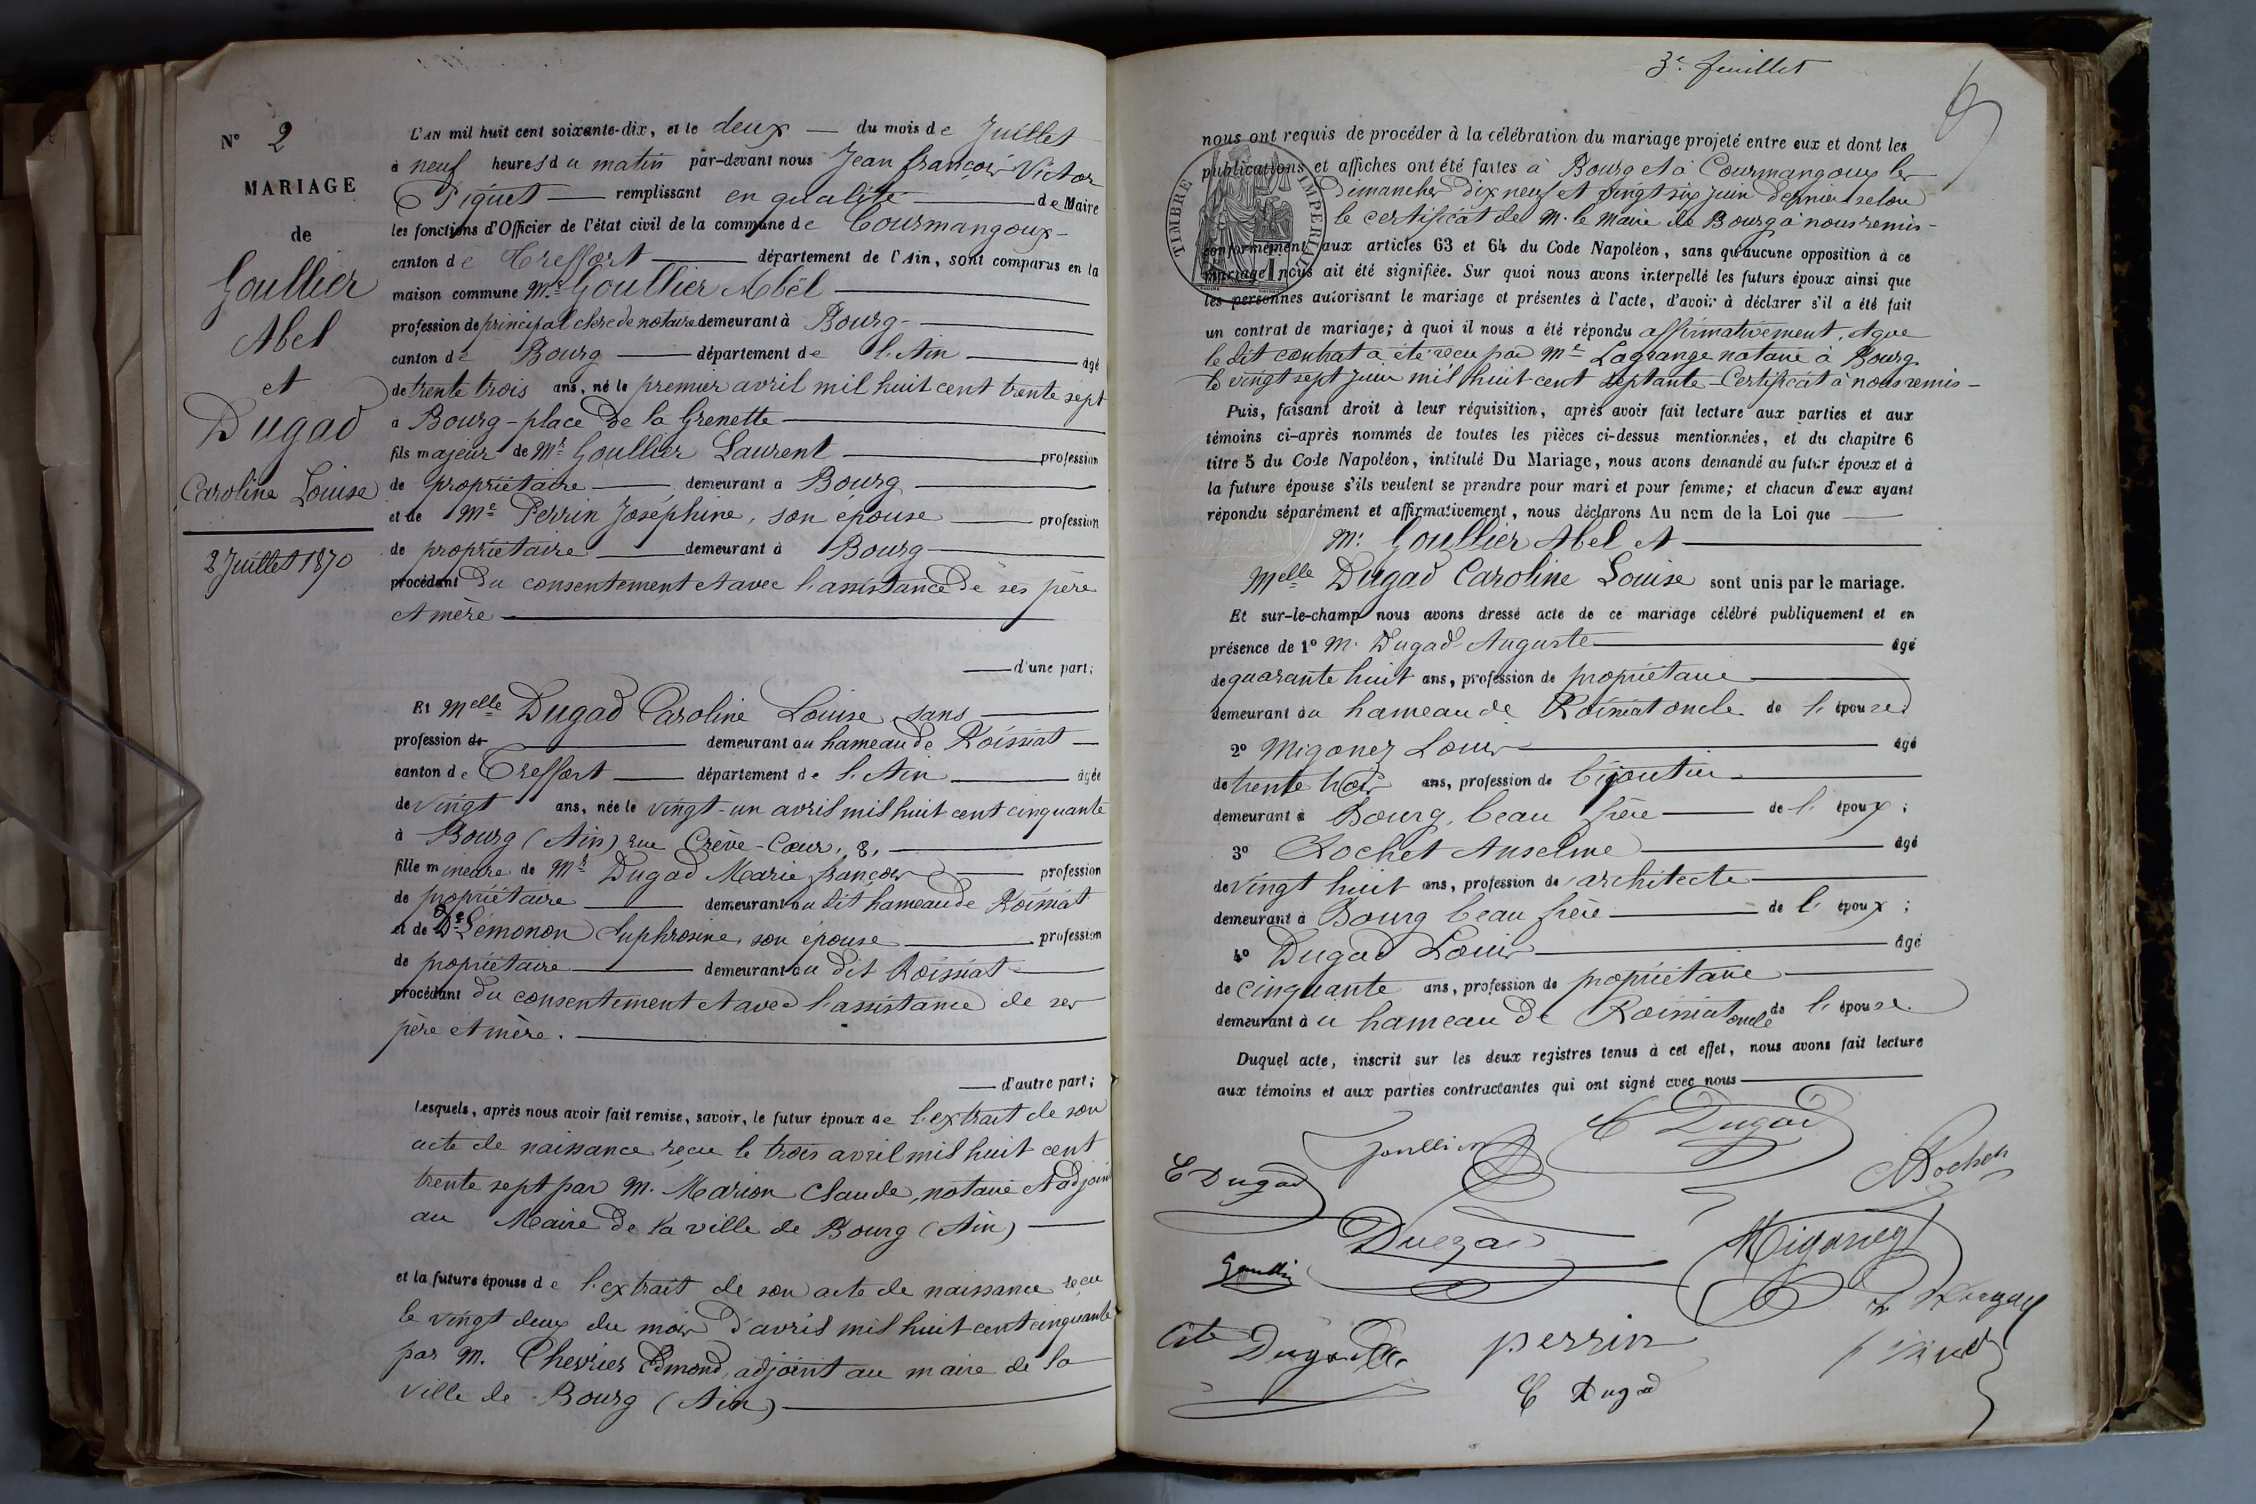 N° 2
MARIAGE
de
Goullier
Abel
et
Dugad
Caroline Louise
2 Juillet 1870
L'AN mil huit cent soixante-dix, et le deux du mois de Juillet
à neuf heures du matin par-devant nous Jean françois Victor
Piquet remplissant en qualité de Maire
les fonctions d'Officier de l'état civil de la commune de Courmangoux
canton de Treffort département de l'Ain, sont comparus en la
maison commune Mr Goullier Abel
profession de principal clerc de notaire demeurant à Bourg
canton de Bourg département de l'Ain âgé
de trente trois ans, né le premier avril mil huit cent trente sept
à Bourg - place de la Grenette
fils majeur de Mr Goullier Laurent profession
de propriétaire demeurant à Bourg
et de Me Perrin Joséphine, son épouse profession
de propriétaire demeurant à Bourg
procédant du consentement et avec l'assistance de ses père
et mère
d'une part;
Et Melle Dugad Caroline Louise, sans
profession de demeurant au hameau de Roissiat
canton de Treffort département de l'Ain âgée
de vingt ans, née le vingt-un avril mil huit cent cinquante
à Bourg (Ain) rue Crève-Cœur, 8,
fille mineure de Mr Dugad Marie françois profession
de propriétaire demeurant au dit hameau de Roissiat
et de De Lémonon Euphrosine, son épouse profession
de propriétaire demeurant au dit Roissiat
procédant du consentement et avec l'assistance de ses
père et mère.
d'autre part;
Lesquels, après nous avoir fait remise, savoir, le futur époux de l'extrait de son
acte de naissance reçu le trois avril mil huit cent
trente sept par M. Marion Claude, notaire et adjoint
au Maire de la ville de Bourg (Ain)
et la future épouse de l'extrait de son acte de naissance reçu
le vingt deux du mois d'avril mil huit cent cinquante
par M. Chevrier Edmond, adjoint au maire de la
ville de Bourg (Ain)
3e feuillet
nous ont requis de procéder à la célébration du mariage projeté entre eux et dont les
publications et affiches ont été faites à Bourg et à Courmangoux les
dimanches dix neuf et vingt six juin dernier selon
le certificat de M. le Maire de Bourg à nous remis
TIMBRE IMPÉRIAL
conformément aux articles 63 et 64 du Code Napoléon, sans qu'aucune opposition à ce
mariage nous ait été signifiée. Sur quoi nous avons interpellé les futurs époux ainsi que
les personnes autorisant le mariage et présentes à l'acte, d'avoir à déclarer s'il a été fait
un contrat de mariage; à quoi il nous a été répondu affirmativement, et que
le dit contrat a été reçu par Me Lagrange notaire à Bourg
le vingt sept juin mil huit cent septante - Certificat à nous remis -
Puis, faisant droit à leur réquisition, après avoir fait lecture aux parties et aux
témoins ci-après nommés de toutes les pièces ci-dessus mentionnées, et du chapitre 6
titre 5 du Code Napoléon, intitulé Du Mariage, nous avons demandé au futur époux et à
la future épouse s'ils veulent se prendre pour mari et pour femme; et chacun d'eux ayant
répondu séparément et affirmativement, nous déclarons Au nom de la Loi que
Mr Goullier Abel et
Melle Dugad Caroline Louise sont unis par le mariage.
Et sur-le-champ nous avons dressé acte de ce mariage célébré publiquement et en
présence de 1° M. Dugad Auguste âgé
de quarante huit ans, profession de propriétaire
demeurant au hameau de Roissiat oncle de l'épouse
2° Migonez Louis âgé
de trente trois ans, profession de bijoutier
demeurant à Bourg, beau frère de l'époux;
3° Rochet Anselme âgé
de vingt huit ans, profession de architecte
demeurant à Bourg beau frère de l'époux;
4° Dugad Louis âgé
de cinquante ans, profession de propriétaire
demeurant à u hameau de Roissiat oncle de l'épouse.
Duquel acte, inscrit sur les deux registres tenus à cet effet, nous avons fait lecture
aux témoins et aux parties contractantes qui ont signé avec nous
C Dugad
Goullier
E Dugad
Rochet
Dugad
Migonez
Dugad
perrin
C Dugad